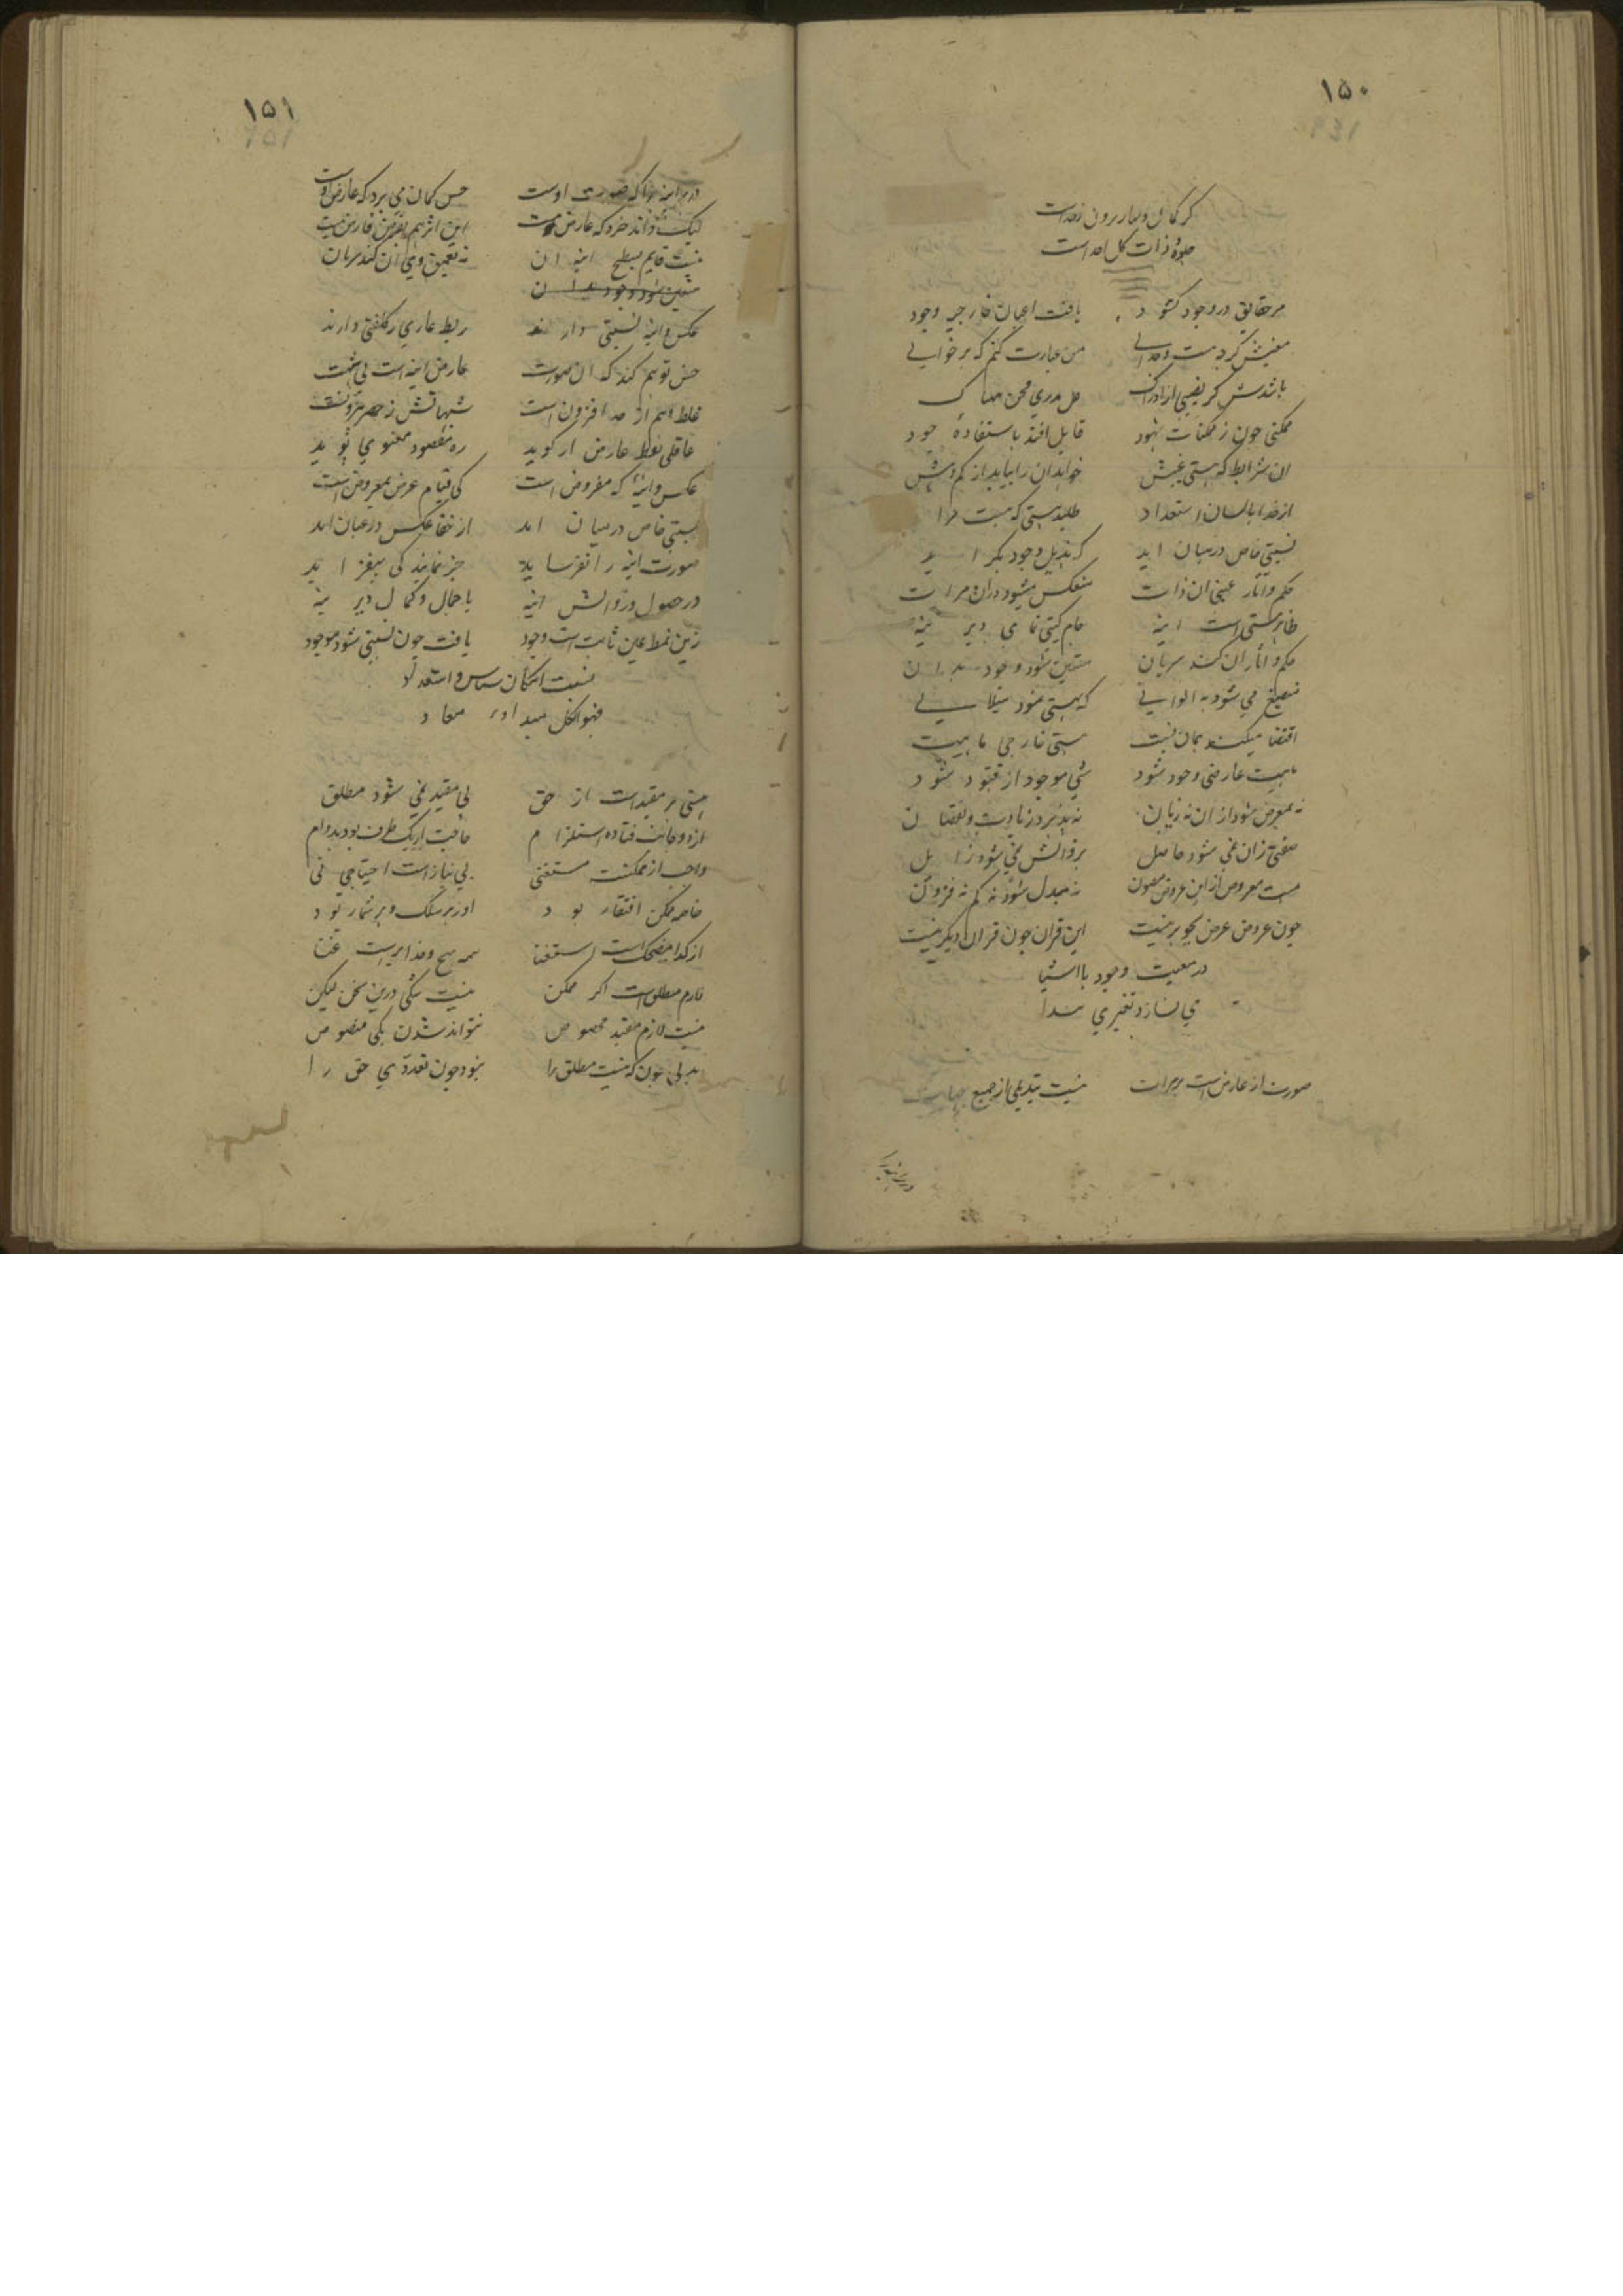 ۱۵۰
جلوهٔ ذات کل احد است
هر حقایق در وجود کشود یافت اعیان خارجیه وجود
من عبارت کنم که برخوانی
ممکنی چون ز ممکنات نبود قابل افتد باستفادهٔ جود
ان شرایط که هستی عینیش خواهد آن را بیابد از کم و بیش
از خدا با لسان استعداد طلبد هستی که هست مراد
نسبتی خاص در میان اید که بذیل وجود بکراید
حکم و اثار عینی ان ذات منعکس میشود دران مرات
ظاهر هستی است اینه جام کیتی نمای دیرینه
حکم و اثار ان کند سریان متعین شود وجود بدان
منصبغ می شود به الوانی که بهستی نمود
اقتضا میکند بدان نسبت هستی خارجی ماهیت
ماهیت عارض وجود شود شی موجود از قیود شود
نه بمعرض شود از ان نه زیان نه پذیرد زیادت و نقصان
صفتی زان نمی شود حاصل بزوالش نمی شود زایل
هست معروض ازین عروض مصون نه مبدل شود نه کم نه فزون
چون عروض عرض بجوهر نیست این قران چون قران دیکر نیست
در معیت وجود با اشیا
می نسازد تغیری پیدا
صورت از عارض است بر مرات نیست تبدیلی از جمیع جهات
۱۵۱
در بر اینه که صورت اوست حس کمان می برد که عارض اوست
لیک داند خرد که عارض نیست
نیست قایم بسطح اینه ان نه بعمق وی ان کند سریان
متعین شود وجود بدان
عکس و اینه نسبتی دارند ربط عاری ز کلفتی دارند
حس توهم کند که ان صورت عارض اینه است بی تهمت
غلط وهم از حد افزون است شبهاتش ز حصر بیرونست
عاقلی لفظ عارض ار کوید ره مقصود معنوی پوید
عکس و اینهٔ که مفروض است کی قیام عرض بمعروض است
نسبتی خاص در میان امد از خفا عکس در عیان امد
صورت اینه را نفرساید جز نمایند کی نیفزاید
در حصول و زوالش اینه با جمال و کمال دیرینه
زین نمط عین ثابت است وجود یافت چون نسبتی شود موجود
نسبت امکان شناس و استعداد
فهو الکل مبدا و معاد
هستی هر مقید است از حق بی مقید نمی شود مطلق
از دو جانب فتاده استلزام حاجت از یک طرف بود بدوام
واجب از ممکنست مستغنی بی نیاز است احتیاجی نی
خاصه ممکن افتقار بود
از کدا مضحک است استغنا
لازم مطلق است اکر ممکن نیست شکی درین سخن لیکن
نیست لازم مقید مخصوص نتواند شدن یکی منصوص
بدلی چون که نیست مطلق را نبود چون تعددی حق را